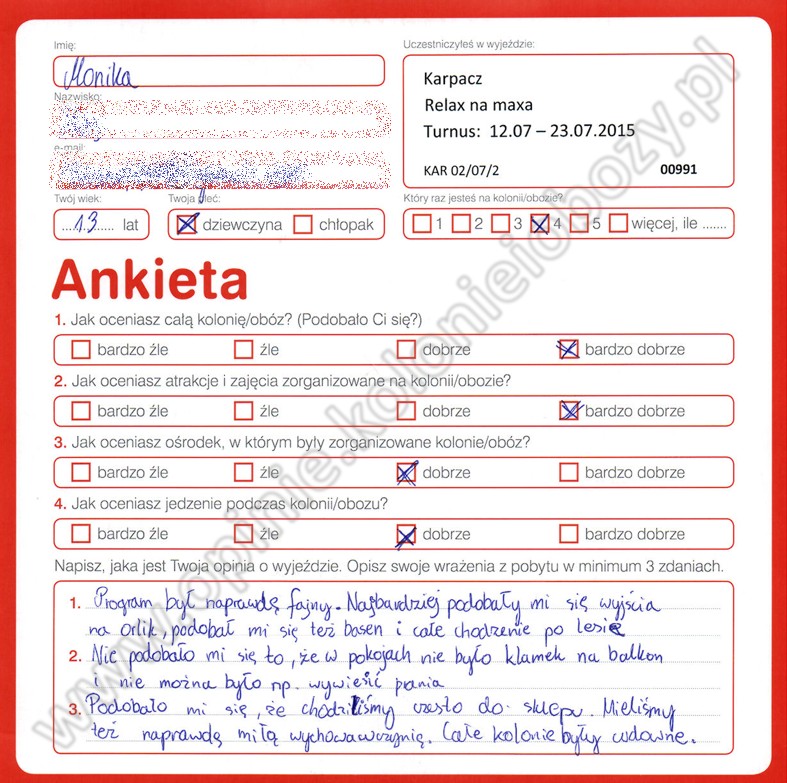 Imię:
Uczestniczyłeś w wyjeździe:
Monika
Karpacz
Nazwisko:
Relax na maxa
Turnus: 12.07 – 23.07.2015
e-mail:
KAR 02/07/2 00991
Twój wiek: Twoja płeć: Który raz jesteś na kolonii/obozie?
...13..... lat dziewczyna chłopak 1 2 3 4 5 więcej, ile .......
Ankieta
1. Jak oceniasz całą kolonię/obóz? (Podobało Ci się?)
bardzo źle źle dobrze bardzo dobrze
2. Jak oceniasz atrakcje i zajęcia zorganizowane na kolonii/obozie?
bardzo źle źle dobrze bardzo dobrze
3. Jak oceniasz ośrodek, w którym były zorganizowane kolonie/obóz?
bardzo źle źle dobrze bardzo dobrze
4. Jak oceniasz jedzenie podczas kolonii/obozu?
bardzo źle źle dobrze bardzo dobrze
Napisz, jaka jest Twoja opinia o wyjeździe. Opisz swoje wrażenia z pobytu w minimum 3 zdaniach.
1. Program był naprawdę fajny. Najbardziej podobały mi się wyjścia
na Orlik, podobał mi się też basen i całe chodzenie po lesie
2. Nie podobało mi się to, że w pokojach nie było klamek na balkon
i nie można było np. wywiesić prania
3. Podobało mi się, że chodziliśmy często do sklepu. Mieliśmy
też naprawdę miłą wychowawczynię. Całe kolonie były cudowne.
www.opinie.kolonieiobozy.pl